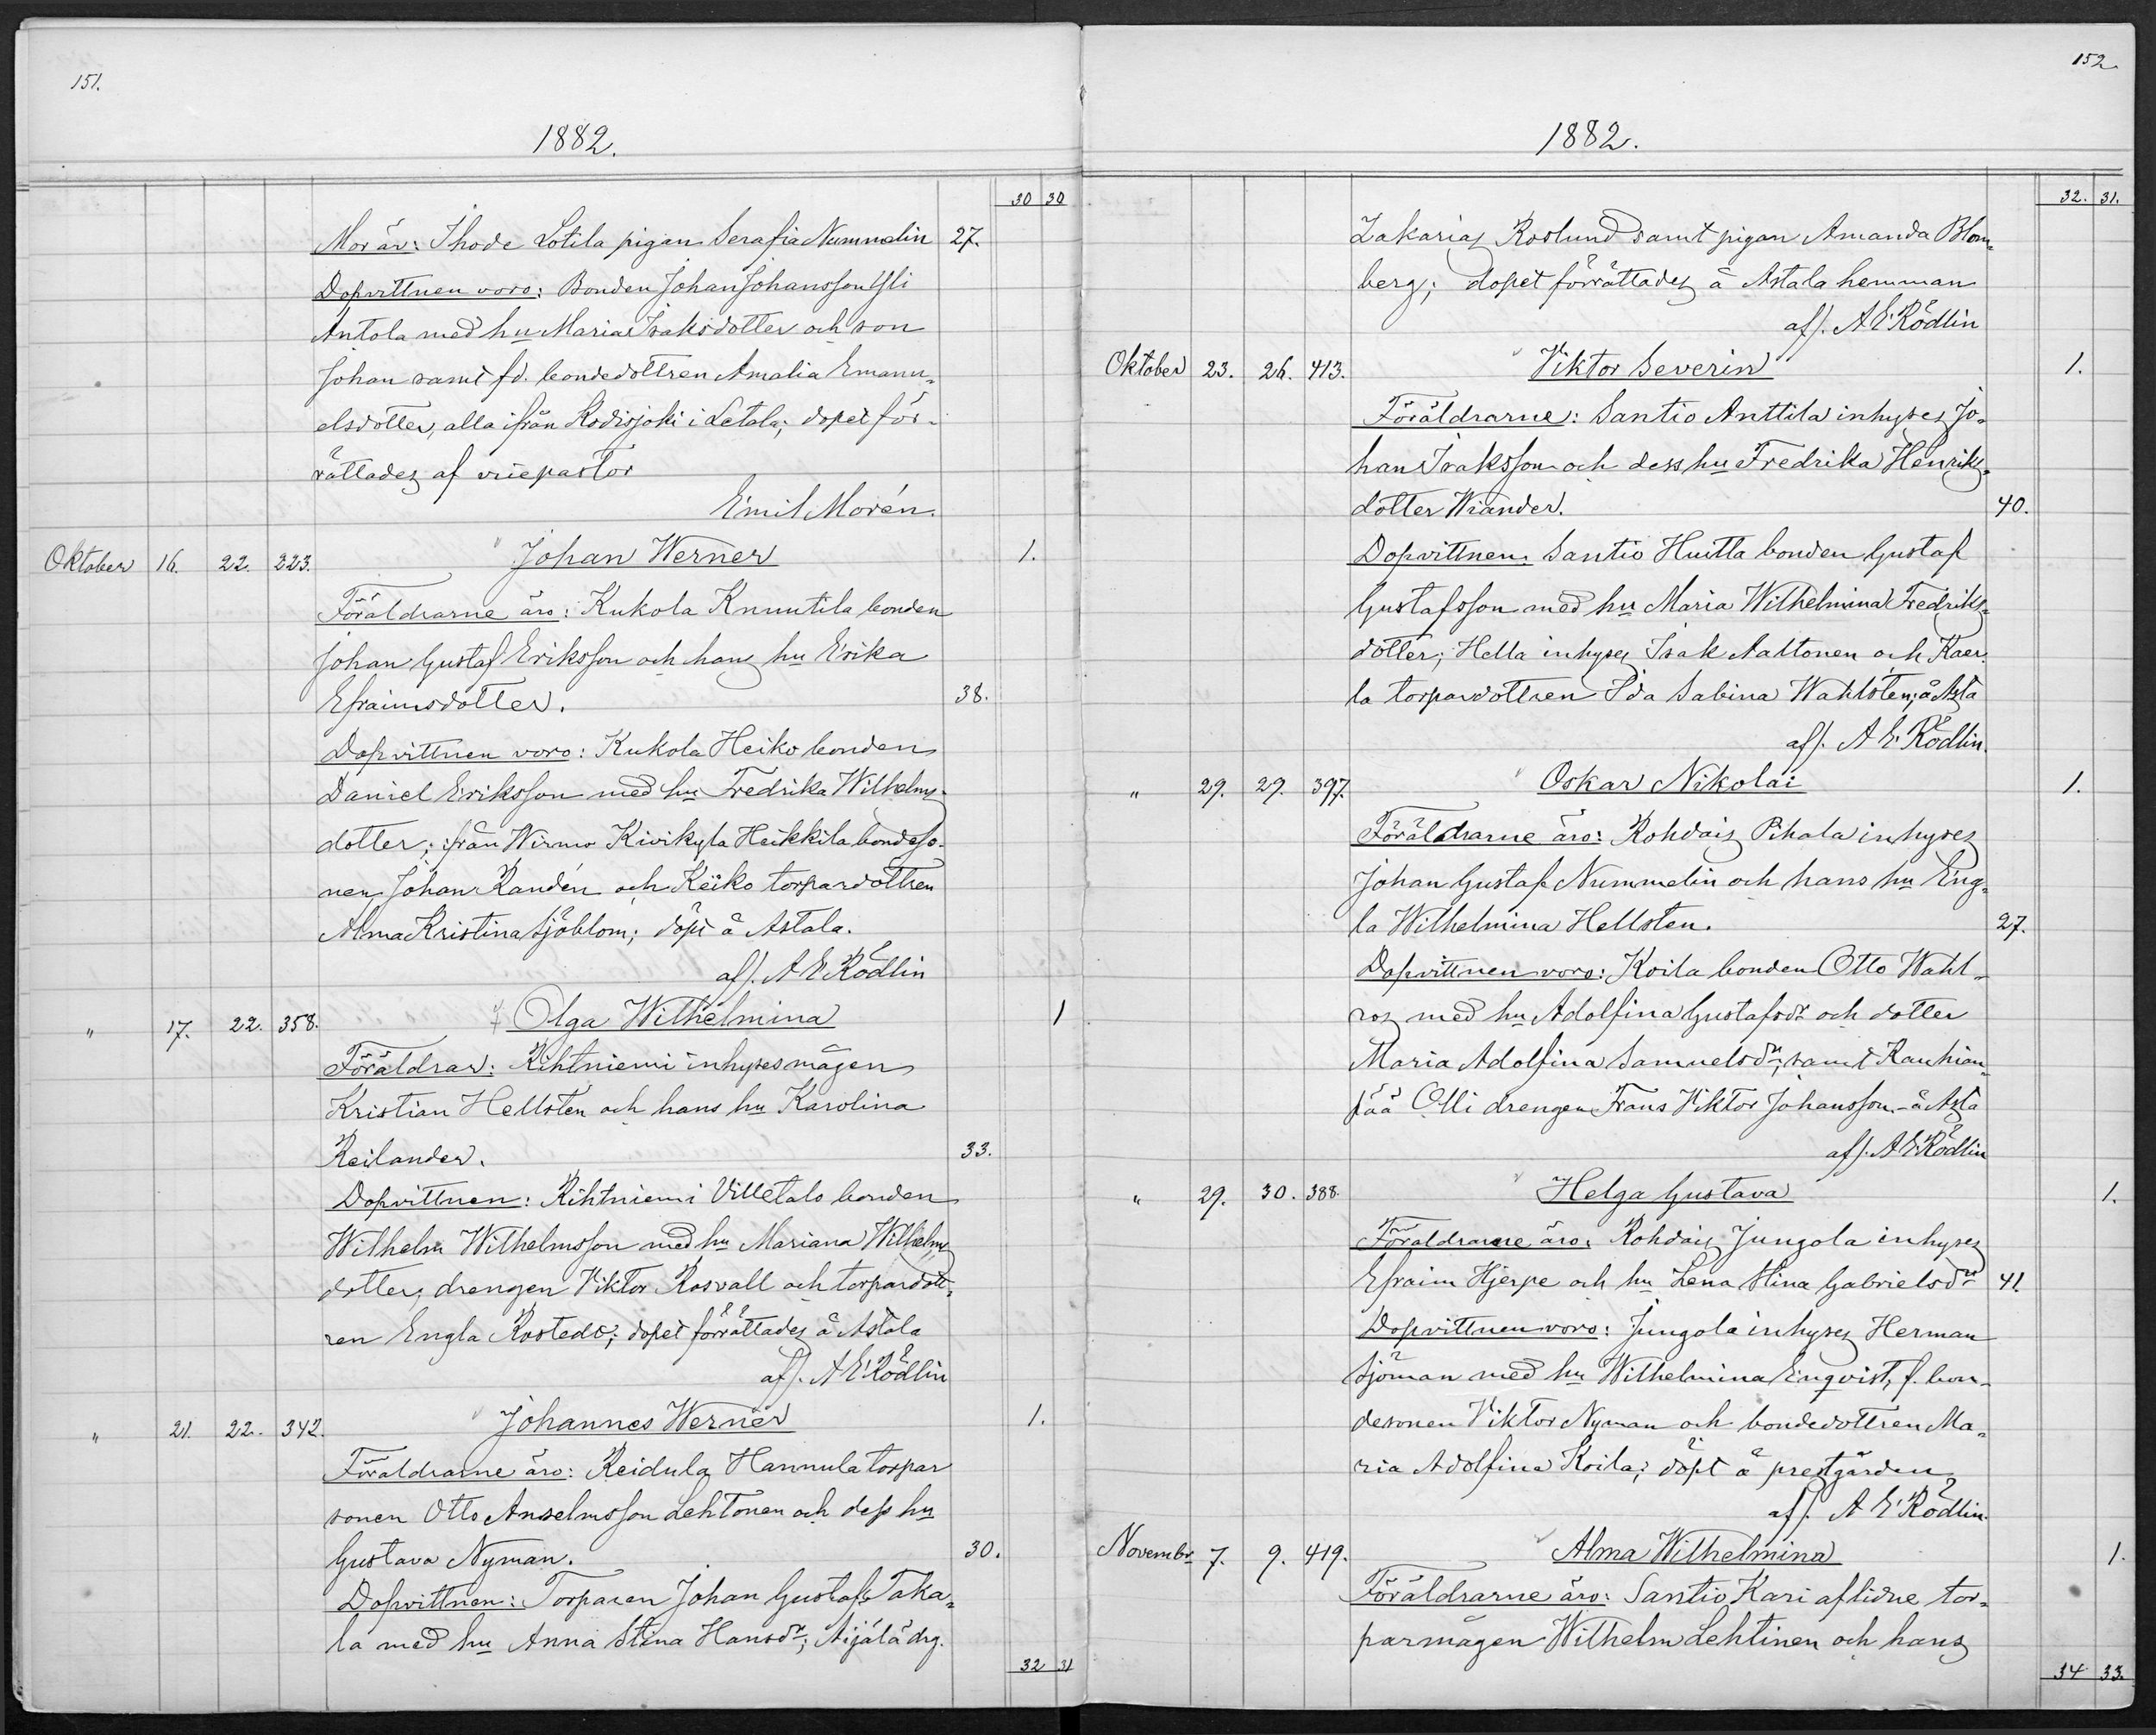 151.
1882.
30 30
Mor är: Ihode Sotila pigan Serafia Nummelin 27.
Dopvittnen voro: Bonden Johan Johansson Yli
Antola med hu Maria Isaksdotter och son
Johan samt fd. bondedottren Amalia Emanu-
elsdotter, alla ifrån Kodisjoki i Letala; dopet för-
rättades af vicepastor
Emil Morén.
Oktober 16. 22. 323. Johan Werner 1.
Föräldrarne äro: Kukola Knuutila bonden
Johan Gustaf Eriksson och hans hu Erika
Efraimsdotter. 38.
Dopvittnen voro: Kukola Heiko bonden
Daniel Eriksson med hu Fredrika Wilhelms-
dotter; från Wirmo Kivikyla Heikkila bondeso-
nen Johan Randén och Keiko torpardottren
Alma Kristina Sjöblom; döpt å Astala.
af/. A E Rödlin
" 17. 22. 358. Olga Wilhelmina 1
Föräldrar: Rihtniemi inhysesmågen
Kristian Hellsten och hans hu Karolina
Reilander. 33.
Dopvittnen: Rihtniemi Villetalo bonden
Wilhelm Wilhelmsson med hu Mariana Wilhelms
dotter, drengen Viktor Rosvall och torpardott-
ren Engla Rostedt; dopet förrättades å Astala
af/. A E Rödlin
" 21. 22. 342. Johannes Werner 1.
Föräldrarne äro: Reidula Hannula torpar
sonen Otto Anselmsson Lehtonen och dess hu
Gustava Nyman. 30.
Dopvittnen: Torparen Johan Gustafss Taka-
la med hu Anna Stina Hansdr; Aijälä drg.
32 31
152.
1882.
32. 31.
Zakarias Roslund samt pigan Amanda Blom-
berg; dopet förrättades å Astala hemman
af/. A E Rödlin
Oktober 23. 26. 413. Viktor Severin 1.
Föräldrarne: Santio Anttila inhyses Jo-
han Isaksson och dess hu Fredrika Henriks-
dotter Wiander. 40.
Dopvittnen: Santio Huitta bonden Gustaf
Gustafsson med hu Maria Wilhelmina Fredriks-
dotter; Hella inhyses Isak Aaltonen och Kaer-
la torpardottren Ida Sabina Wahlsten; å Asta
af/. A E Rödlin.
" 29. 29. 397. Oskar Nikolai 1.
Föräldrarne äro: Rohdais Pihala inhyses
Johan Gustaf Nummelin och hans hu Eng-
la Wilhelmina Hellsten. 27.
Dopvittnen voro: Koila bonden Otto Wahl-
ros med hu Adolfina Gustafsdr och dotter
Maria Adolfina Samuelsdr; samt Rauhian-
pää Olli drengen Frans Viktor Johansson - å Asta
af/. A E Rödlin
" 29. 30. 388. Helga Gustava 1.
Föräldrarne äro: Rohdais Jungola inhyses
Efraim Hjerpe och hu Lena Stina Gabrielsdr 41.
Dopvittnen voro: Jungola inhyses Herman
Sjöman med hu Wilhelmina Enqvist, f. bon-
desonen Viktor Nyman och bondedottren Ma-
ria Adolfina Koila; döpt å prestgården
af/. A E Rödlin.
Novembr 7. 9. 419. Alma Wilhelmina 1.
Föräldrarne äro: Santio Kari aflidne tor-
parmågen Wilhelm Lehtinen och hans
34 33.